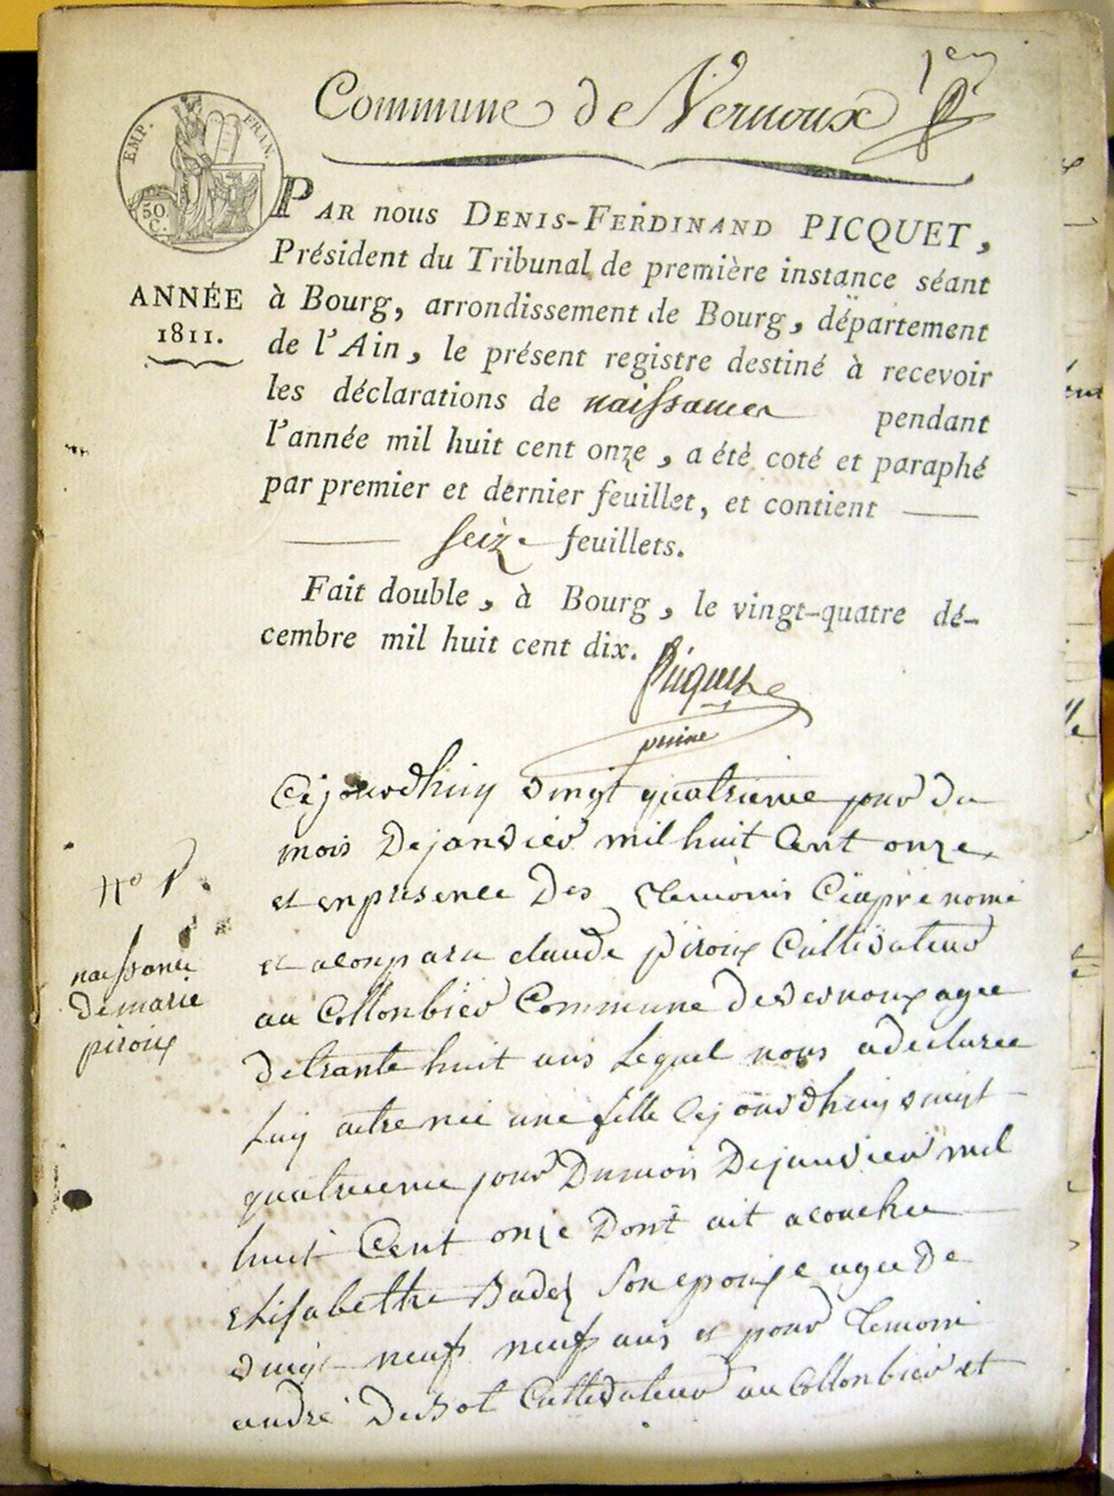 1er
Commune de Vernoux
EMP. FRAN.
50 C.
ANNÉE
1811.
PAR nous DENIS-FERDINAND PICQUET,
Président du Tribunal de première instance séant
à Bourg, arrondissement de Bourg, département
de l'Ain, le présent registre destiné à recevoir
les déclarations de naissances pendant
l'année mil huit cent onze, a été coté et paraphé
par premier et dernier feuillet, et contient
seize feuillets.
Fait double, à Bourg, le vingt-quatre dé-
cembre mil huit cent dix.
Picquet
Cejourdhuy vingt quatrieme jour du
mois Dejanvier mil huit Cent onze
et enpresence Des temoins Ciaprè nomé
et acomparu claude piroux Cultivateur
au Collonbier Commune devernoux agee
detrante huit ans Lequel nous adeclaree
Luy aitre née une fille Cejourdhuy vingt
quatrieme jour Dumois Dejanvier mil
huit Cent onze Dont ait acouchee
Elisabethe Badez Son epouse agee De
vingt neuf neuf ans et pour temoin
andré Cultivateur au Collonbier et
No 1er.
naissance
de marie
piroux